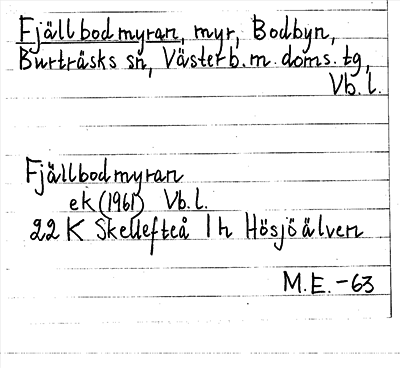 Fjällbodmyran, myr, Bodbyn,
Burträsks sn, Västerb. m. doms. tg,
Vb. l.
Fjällbodmyran
ek (1961) Vb. l.
22 K Skellefteå 1 h Hösjöälven
M. E. -63